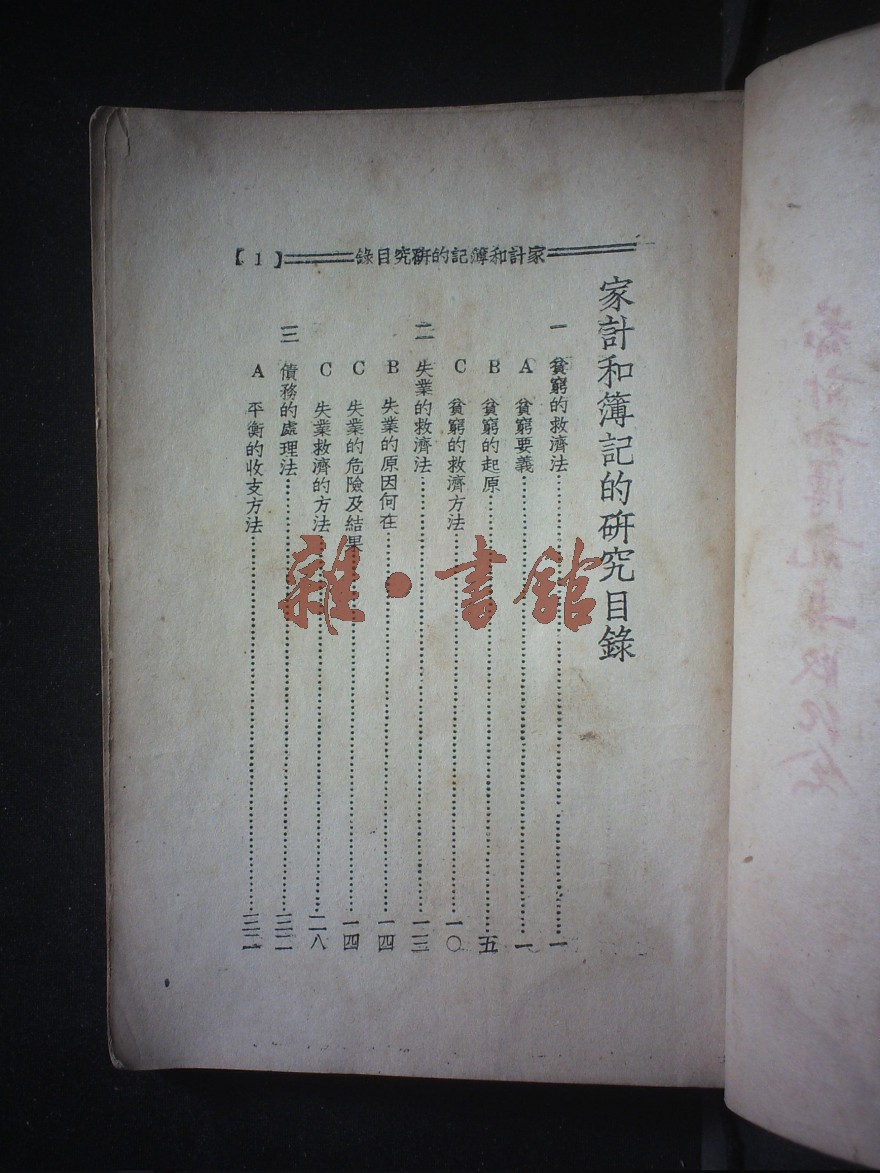 家計和簿記的研究目錄【1】
家計和簿記的研究目錄
一 貧窮的救濟法……一
A 貧窮要義……一
B 貧窮的起原……五
C 貧窮的救濟方法……一〇
二 失業的救濟法……一三
B 失業的原因何在……一四
C 失業的危險及結果……一四
C 失業救濟的方法……二八
三 債務的處理法……三二
A 平衡的收支方法……三二
雜·書館